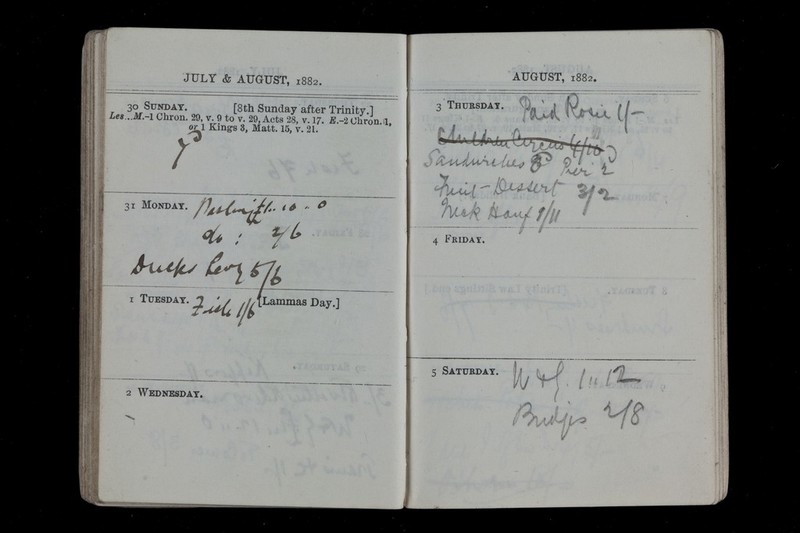 JULY & AUGUST, 1882.
30 SUNDAY. [8th Sunday after Trinity.]
Les...M.-1 Chron. 29, v. 9 to v. 29, Acts 28, v. 17. E.-2 Chron. 1,
or 1 Kings 3, Matt. 15, v. 21.
31 MONDAY. 10 - 0
do : 2/6
Ducks Levy 5/6
1 TUESDAY. Fish 1/6 [Lammas Day.]
2 WEDNESDAY.
AUGUST, 1882.
3 THURSDAY. Paid Rosie 1/-
Children Circus 4/10
Sandwiches Pier 2
Fruit - Dessert 3/2
4 FRIDAY.
5 SATURDAY. 1 " 12
Bridges 2/8